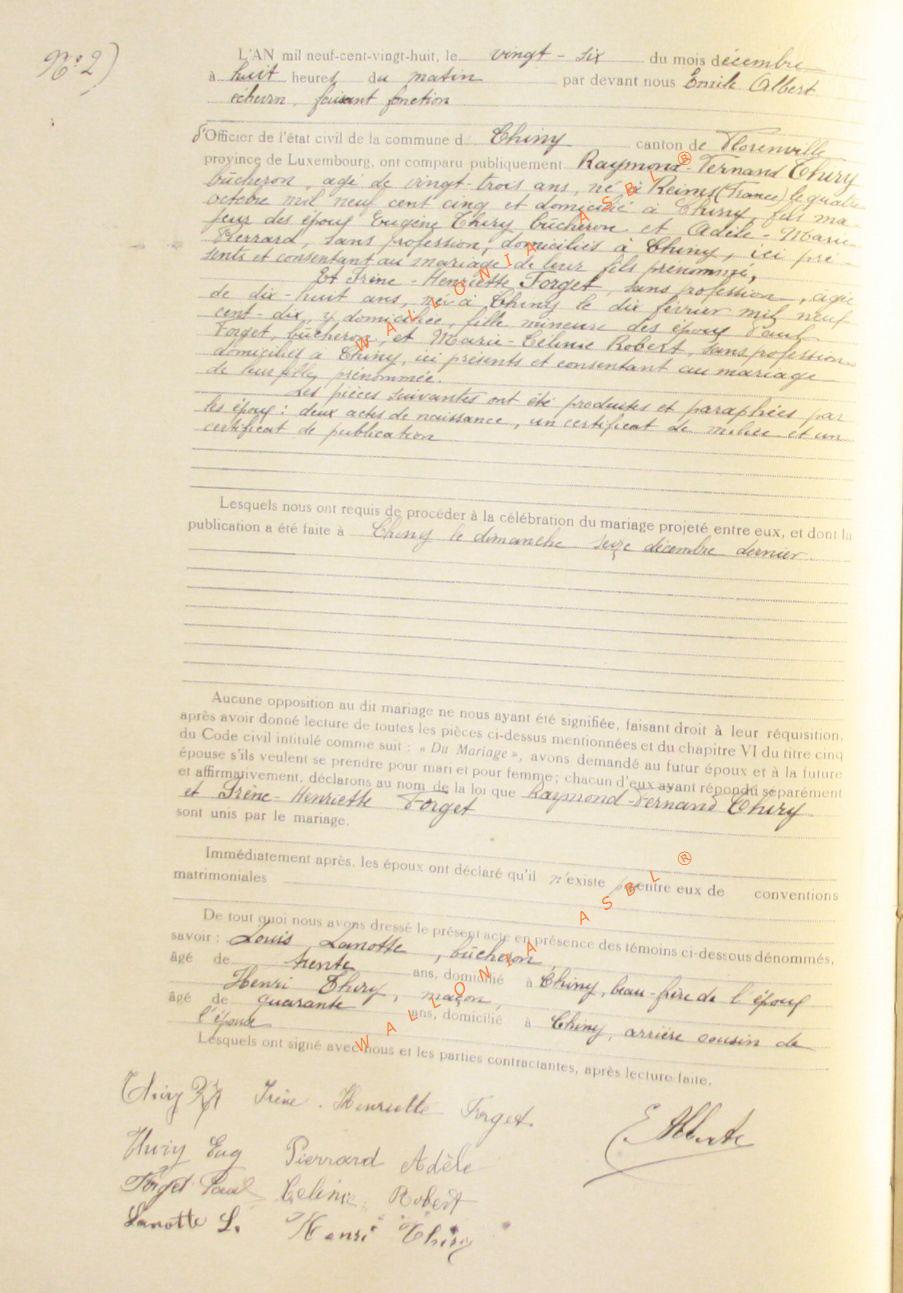 N° 2)
L'AN mil neuf-cent-vingt-huit, le vingt-six du mois décembre
à huit heures du matin par devant nous Emile Albert
échevin, faisant fonction
d'Officier de l'état civil de la commune d Chiny canton de Florenville
province de Luxembourg, ont comparu publiquement Raymond-Fernand Thiry
bûcheron, agé de vingt-trois ans, né à Reims (France) le quatre
octobre mil neuf cent cinq et domicilié à Chiny, fils ma-
jeur des époux Eugène Thiry bûcheron et Adèle-Marie
Pierrard, sans profession, domiciliés à Chiny, ici pré-
sents et consentant au mariage de leur fils prénommé,
Et Irène-Henriette Forget, sans profession, agée
de dix-huit ans, née à Chiny le dix février mil neuf
cent-dix, y domiciliée, fille mineure des époux Paul
Forget, bûcheron, et Marie-Celinie Robert, sans profession
domiciliés à Chiny, ici présents et consentant au mariage
de leur fille prénommée.
Les pièces suivantes ont été produites et paraphées par
les époux : deux actes de naissance, un certificat de milice et un
certificat de publication
Lesquels nous ont requis de procéder à la célébration du mariage projeté entre eux, et dont la
publication a été faite à Chiny le dimanche seize décembre dernier
Aucune opposition au dit mariage ne nous ayant été signifiée, faisant droit à leur réquisition,
après avoir donné lecture de toutes les pièces ci-dessus mentionnées et du chapitre VI du titre cinq
du Code civil intitulé comme suit : « Du Mariage », avons demandé au futur époux et à la future
épouse s'ils veulent se prendre pour mari et pour femme ; chacun d'eux ayant répondu séparément
et affirmativement, déclarons au nom de la loi que Raymond-Fernand Thiry
et Irène-Henriette Forget
sont unis par le mariage.
Immédiatement après, les époux ont déclaré qu'il n'existe pas entre eux de conventions
matrimoniales
De tout quoi nous avons dressé le présent acte en présence des témoins ci-dessous dénommés,
savoir : Louis Lanotte, bûcheron,
âgé de trente ans, domicilié à Chiny, beau-frère de l'époux
Henri Thiry, maçon,
âgé de quarante ans, domicilié à Chiny, arrière cousin de
l'époux
Lesquels ont signé avec nous et les parties contractantes, après lecture faite.
Thiry Irène-Henriette Forget.
E Alberte
Thiry Eug Pierrard Adèle
Forget Paul Celinie Robert
Lanotte L. Henri Thiry
WALLONIA ASBL ®
WALLONIA ASBL ®